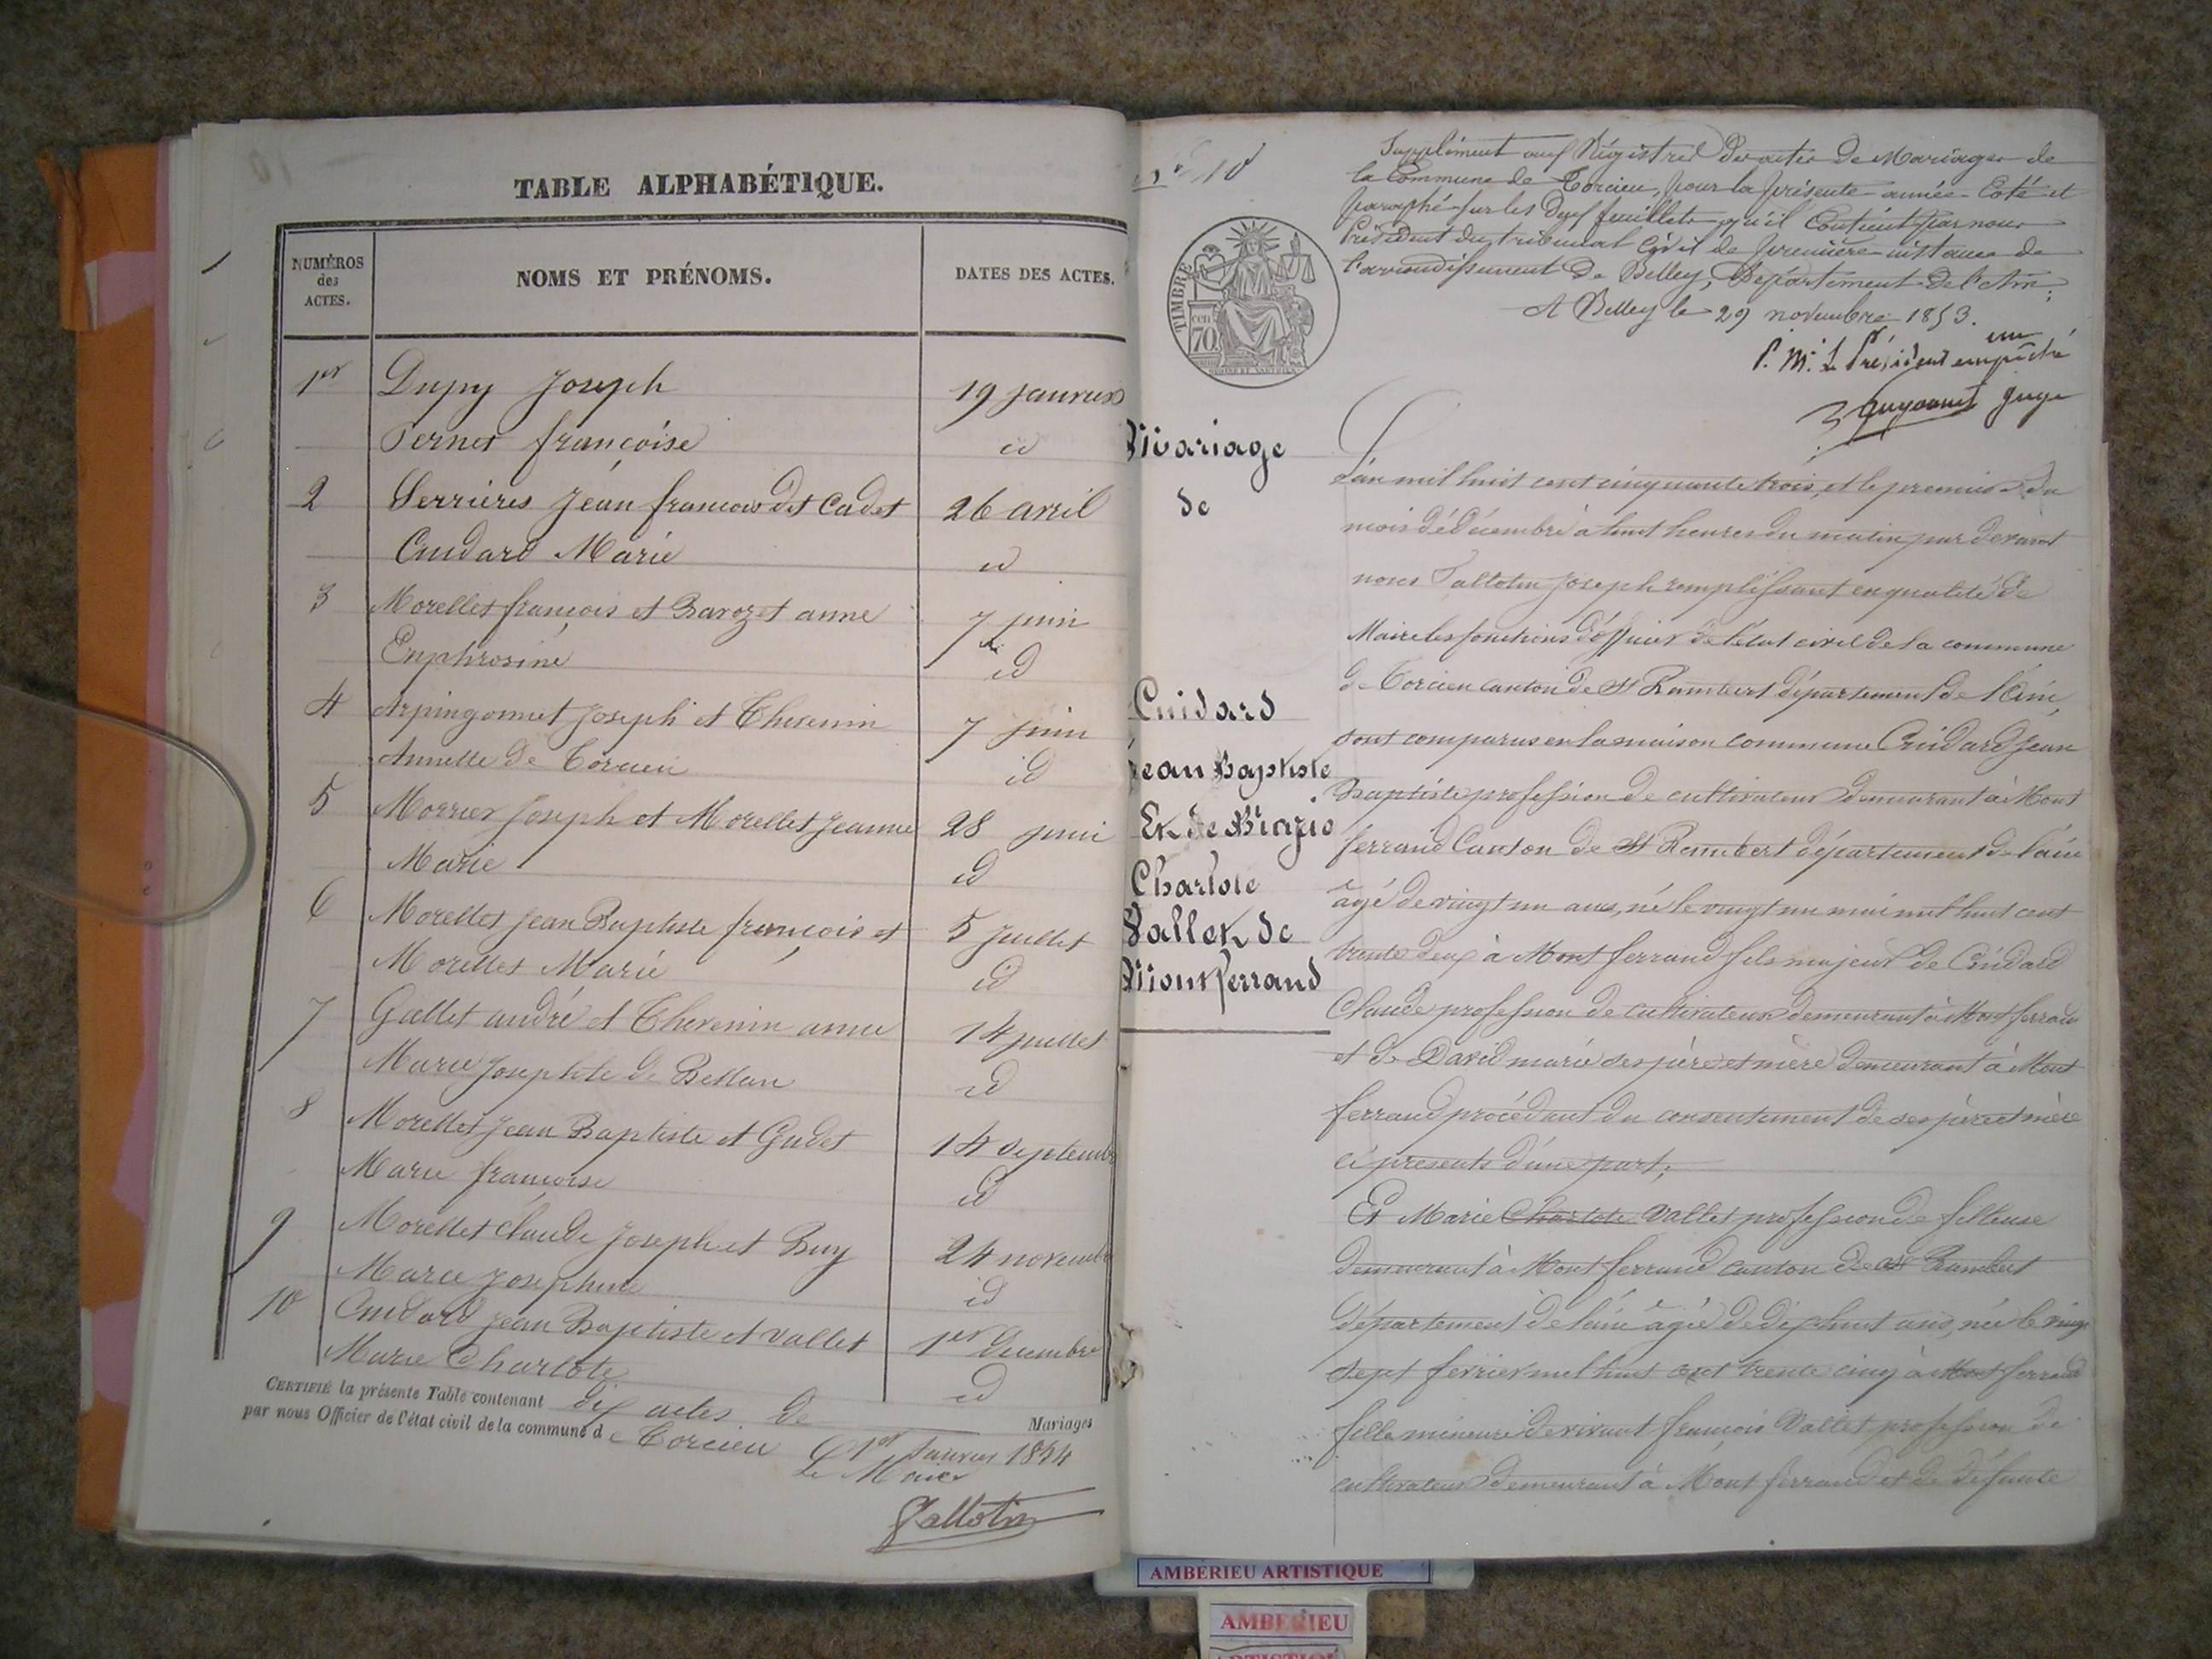 TABLE ALPHABÉTIQUE.
NUMÉROS des ACTES.
NOMS ET PRÉNOMS.
DATES DES ACTES.
1er Dupy Joseph 19 Janvier
françoise id
2 Serrières Jean francois dit Cadet 26 avril
Cuidard Marie id
3 Morellet françois et Barozet anne 7 juin
Euphrosine id
4 Arpingonnet Joseph et Thevenin 7 juin
Annette de Torcieu id
5 Joseph et Morellet Jeanne 28 juin
Marie id
6 Morellet Jean Baptiste françois et 5 Juillet
Morellet Marie id
7 Gallet andré et Thevenin anne 14 juillet
Marie Josephte de id
8 Morellet Jean Baptiste et Gudet 14 septembre
Marie francoise id
9 Morellet Claude Joseph et Buy 24 novembre
Marie Josephine id
10 Cuidard Jean Baptiste et Vallet 1er Decembre
Marie Charlote id
CERTIFIÉ la présente Table contenant dix actes de Mariages
par nous Officier de l'état civil de la commune de Torcieu Le 1er Janvier 1854
Le Maire
Tallotin
n° 10
TIMBRE
cen
70
Supplément aux Régistres des actes de Mariages de
la Commune de Torcieu, pour la présente année. Coté et
paraphé sur les deux feuillets qu'il Contient par nous
Président du tribunal Civil de première instance de
l'arrondissement de Belley, Département de l'Ain;
A Belley le 29 novembre 1853.
P. Mr. Le Président empêché
Juge
Mariage
de
Cuidard
Jean Baptiste
Et de Marie
Charlote
Vallet de
Montferrand
L'an mil huit cent cinquante trois, et le premier du
mois de Décembre à huit heures du matin par devant
nous Tallotin Joseph remplissant en qualité de
Maire les fonctions d'officier de l'état civil de la commune
de Torcieu canton de St Rambert département de l'ain,
sont comparus en la maison commune Cuidard Jean
Baptiste profession de cultivateur demeurant à Mont
ferrand Canton de St Rambert département de l'ain
âgé de vingt un ans, né le vingt un mai mil huit cent
trente deux à Mont ferrand fils majeur de Cuidard
Claude profession de cultivateur demeurant à Mont ferrand
et de David marie ses père et mère demeurant à Mont
ferrand procédant du consentement de ses père et mère
ci présents d'une part;
Et Marie Charlote Vallet profession de filleuse
demeurant à Mont ferrand canton de St Rambert
département de l'ain âgée de dix huit ans, née le vingt
sept fevrier mil huit cent trente cinq à Mont ferrand
fille mineure de vivant françois Vallet profession de
cultivateur demeurant à Mont ferrand et de défunte
AMBERIEU ARTISTIQUE
AMBERIEU
ARTISTIQUE